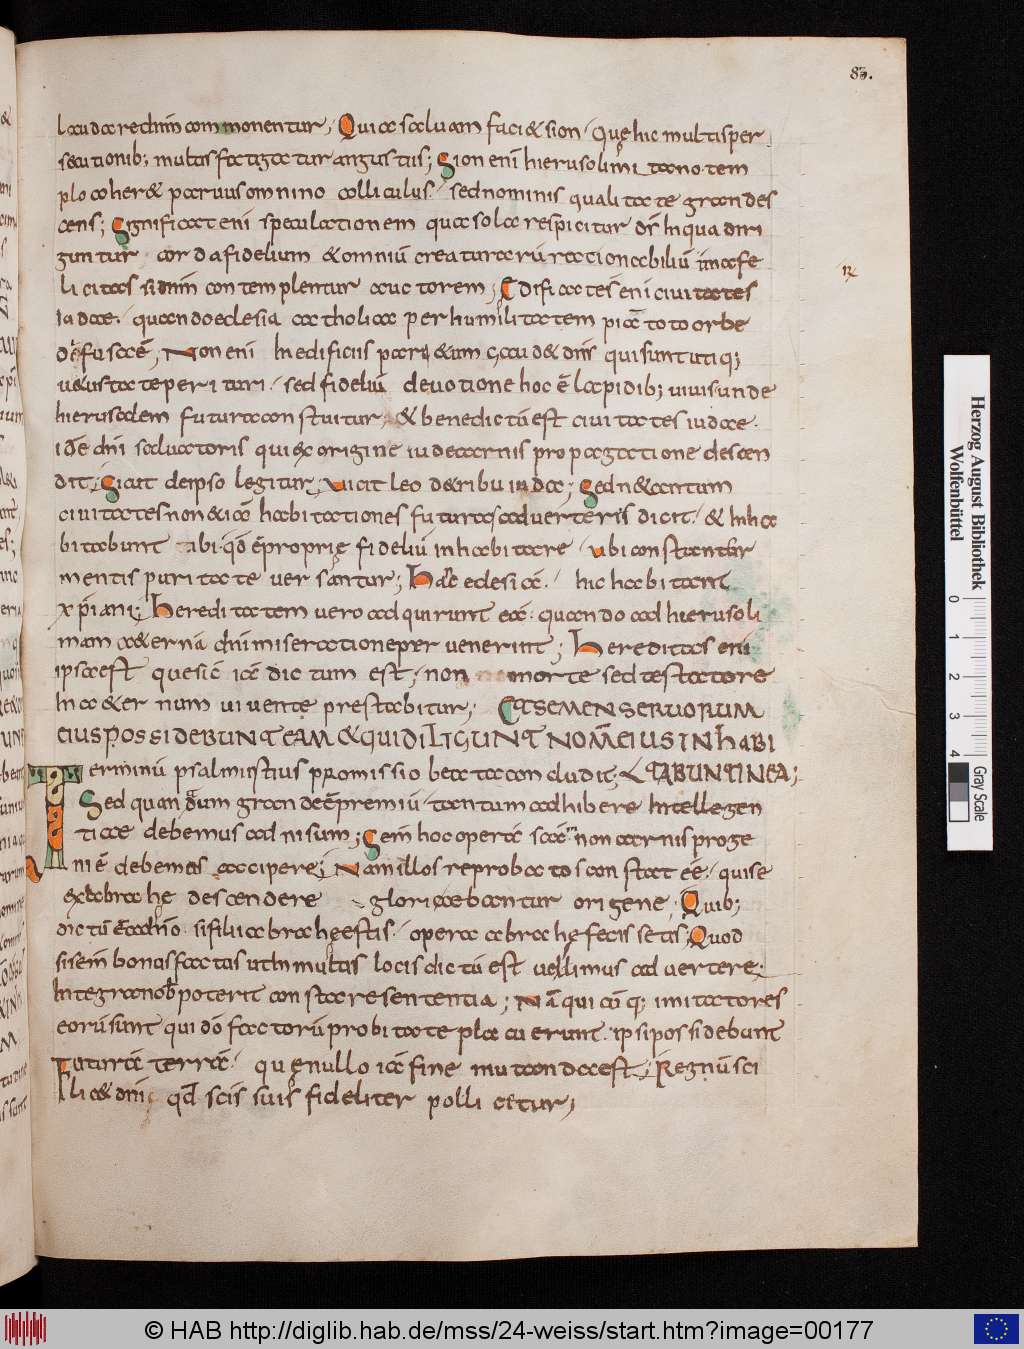 83.
laudare dnm̄ commonentur; Quia saluam faci& sion. Quę hic multis per
secutionib; multas fatigatur angustiis; Sion enī hierusolimitano tem
plo adher& paruus omnino colliculus. sed nominis qualitate grandes
cens; Significat enī speculationem qua sola respicitur dn̄s In qua diri
guntur corda fidelium & omniū creaturarū rationabiliū immo fe
licitas si dnm̄ contemplentur auctorem; Edificantes enī ciuitates
iudae. quando eclesia catholica per humilitatem pia toto orbe
R
defusa ē; Non enī In edificiis pari&um gaud& dn̄s qui sunt utiq;
u&ustate perituri. sed fideliū deuotione hoc ē lapidib; uiuis unde
hierusalem futura construitur. & benedictū est ciuitates iudae.
idē dn̄i saluatoris qui ex origine iude carnis propagatione descen
dit; Sicut de ipso legitur; Vicit leo de tribu iuda; Sed n& tantum
ciuitates non & iā habitationes futuras aduerteris dicit. & Inha
bitabunt ibi. qd̄ ē proprię fideliū inhabitare. ubi constanter
mentis puritate uersantur; Hac eclesia. hic habitant
xp̄iani; Hereditatem uero adquirunt eā. quando ad hierusoli
mam aeternā dn̄i miseratione peruenerint; Hereditas enī
ipsa est que sic iā dictum est; non morte sed testatore
In aeternum uiuente prestabitur; ET SEMEN SERUORUM
EIUS POSSIDEBUNT EAM & QUI DILIGUNT NOMĒ EIUS INHABI
Terminū psalmi istius promissio beata concludit; TABUNT IN EA;
Sed quantum grande ē premiū. tantum adhibere Intellegen
tiae debemus ad nisum; Sem̄ hoc opera sc̄a non carnis proge
niē debemus accipere; Nam illos reprobatos constat eē. qui se
ex abrahę descendere gloriabantur origene; Quib;
dictū ē a dn̄o. si filii abrahę estis. opera abrahę fecissetis; Quod
si sem̄ bonus factas ut In multis locis dictū est uellimus aduertere;
Integra nob poterit constare sententia; Nā qui cūq; imitatores
eorū sunt qui dō factorū probitate placuerunt. ipsi possidebunt
futurā terrā. quę nullo iā fine mutanda est; Regnū sci
lic& dn̄i. qd̄ scis suis fideliter pollicetur;
Herzog August Bibliothek
Wolfenbüttel
0 1 2 3 4
Gray Scale
© HAB http://diglib.hab.de/mss/24-weiss/start.htm?image=00177